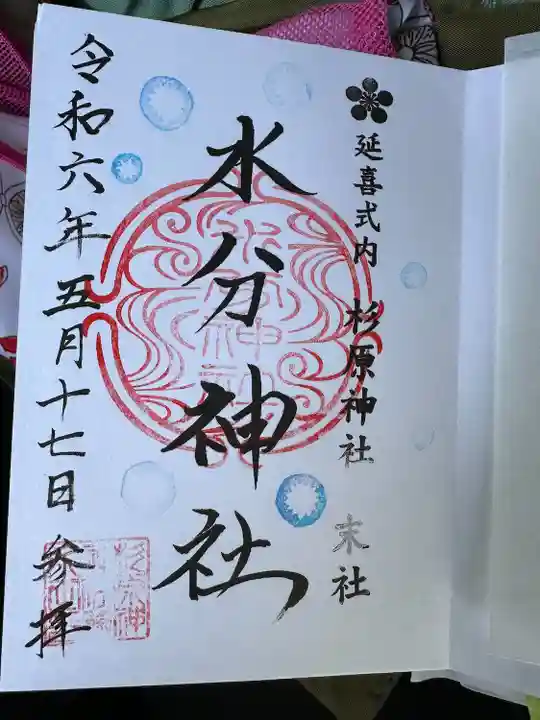 延喜式内 杉原神社 末社
水分神社
水分神社
令和六年五月十七日 参拝